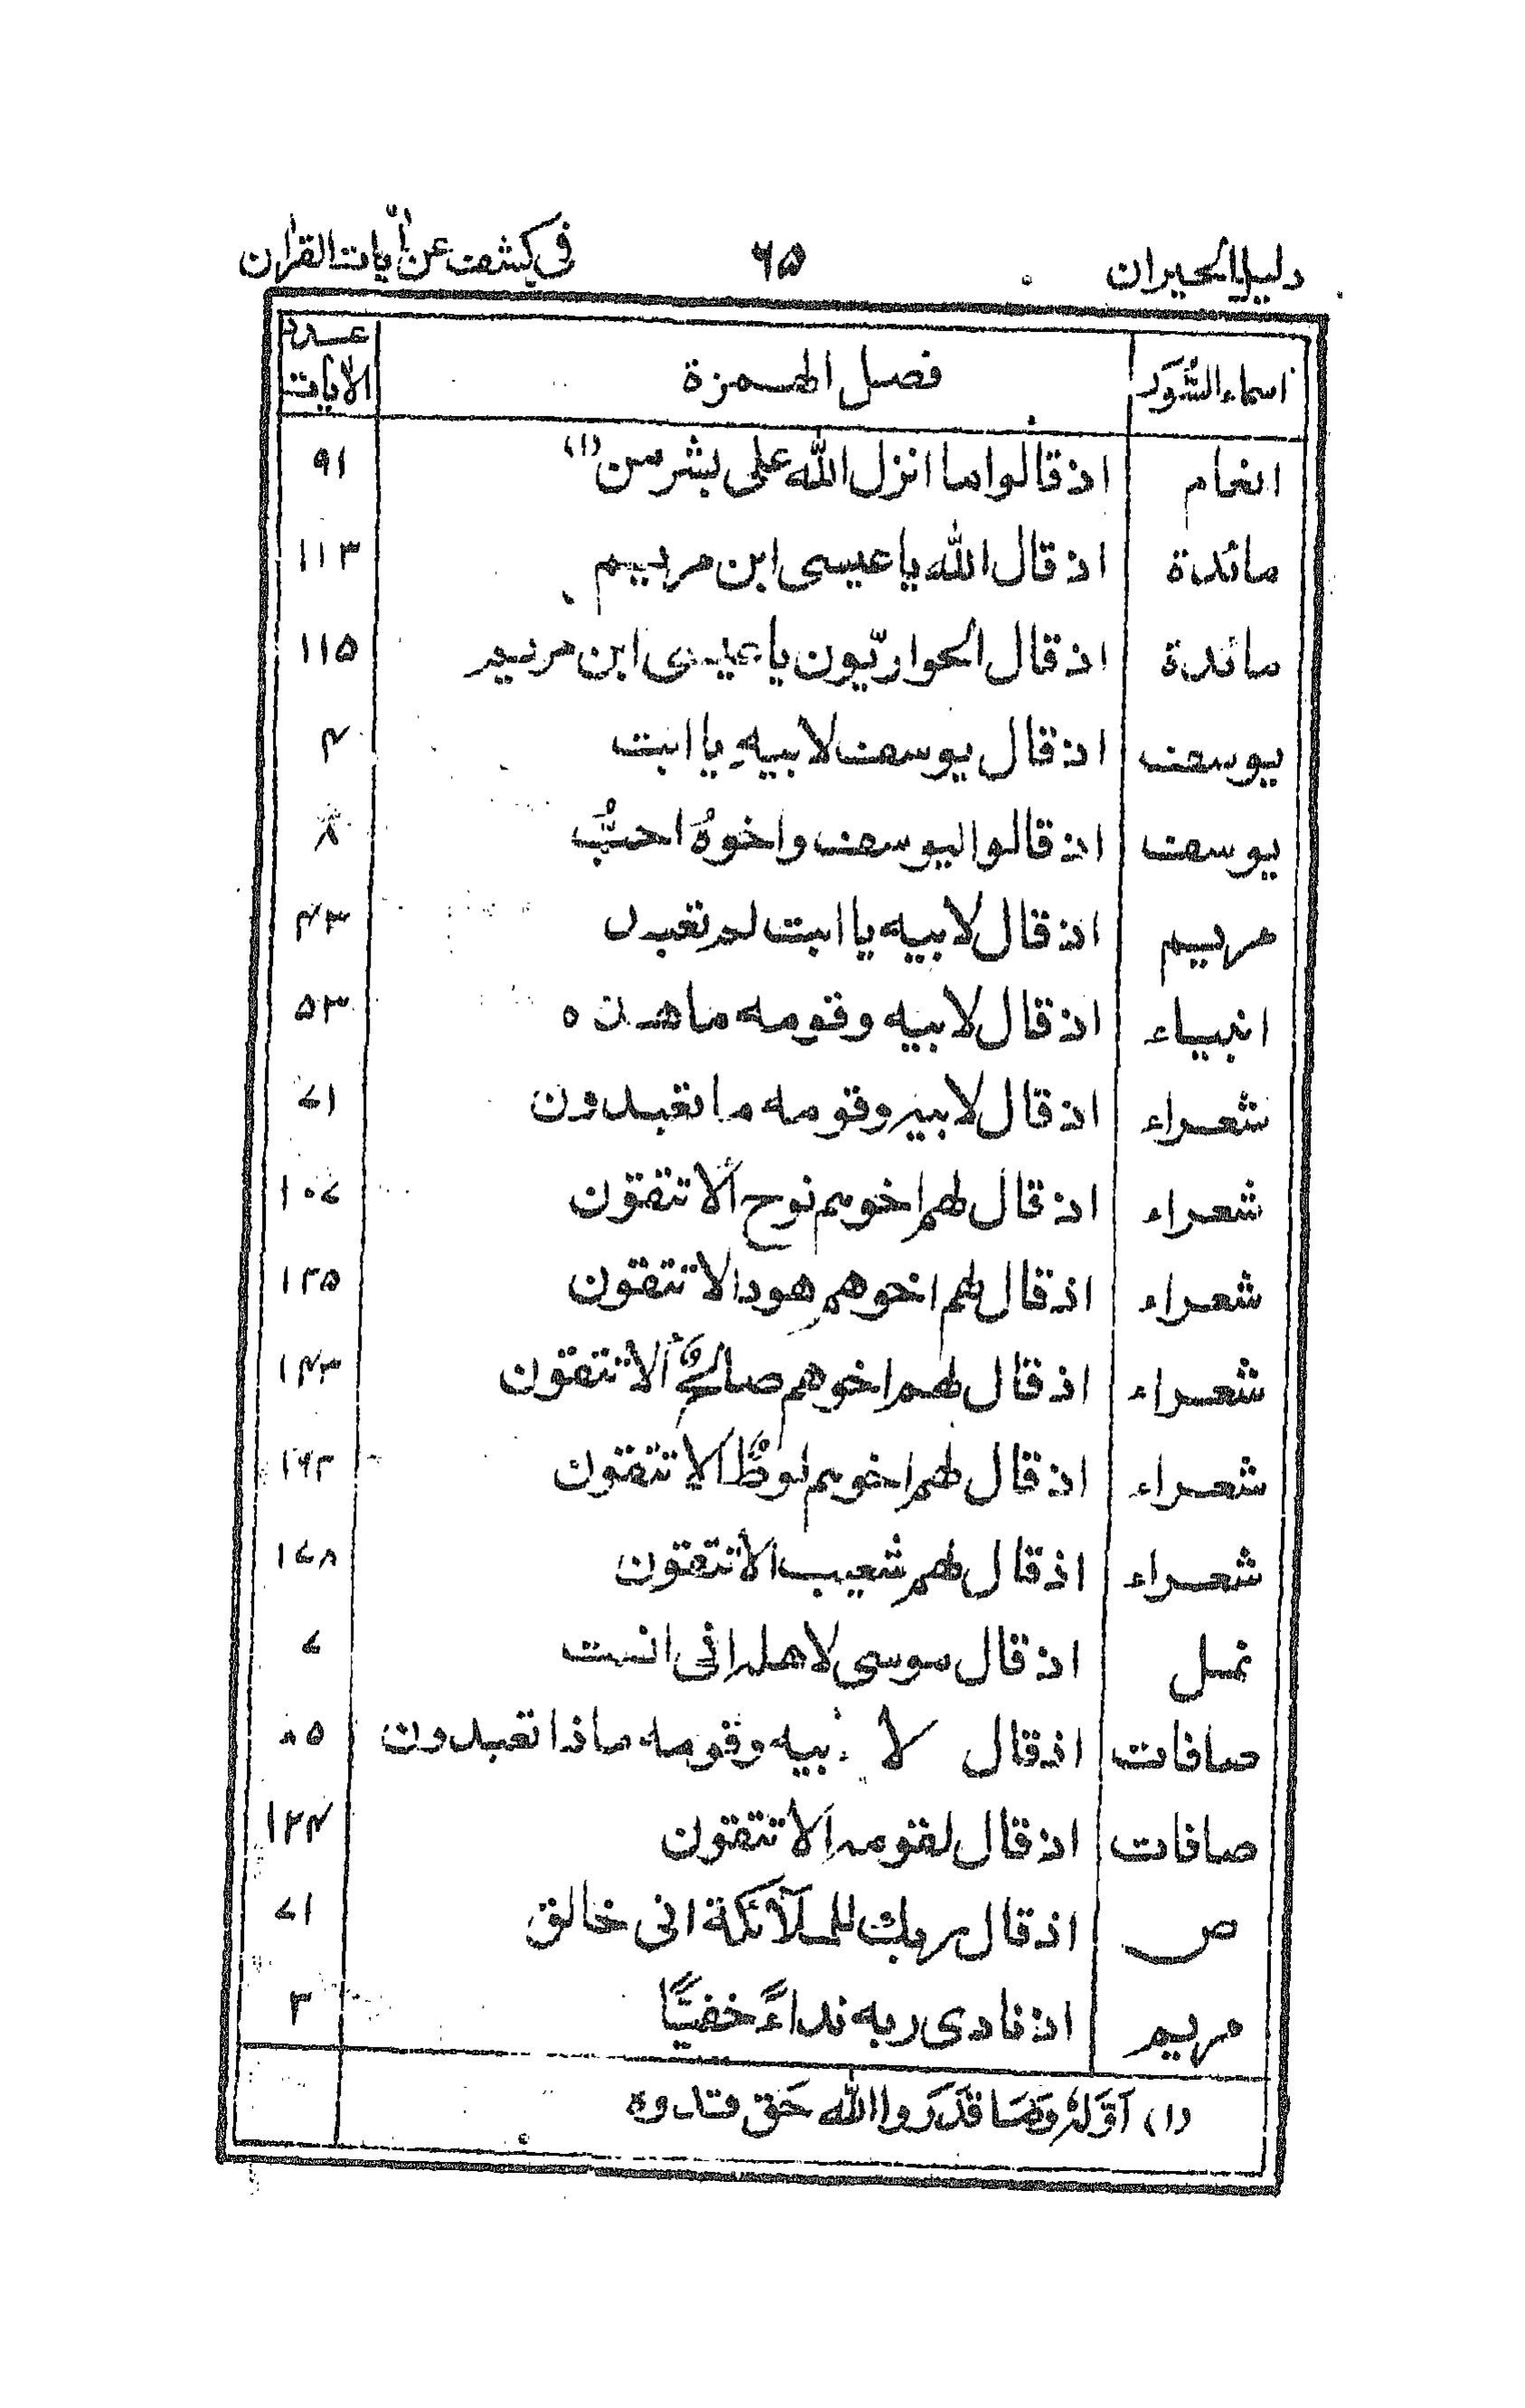 دليل الحيران ۶۵ في كشف عن اٰيات القراٰن
اسماء السُّوَر فصل الهمزة عدد الآيات
انعام اذ قالوا ما انزل الله على بشر من (۱) ۹۱
مائدة اذ قال الله يا عيسى ابن مريم ۱۱۳
مائدة اذ قال الحواريّون يا عيسى ابن مريم ۱۱۵
يوسف اذ قال يوسف لابيهِ يا ابت ۴
يوسف اذ قالوا ليوسف واخوهُ احبُّ ۸
مريم اذ قال لابيه يا ابت لم تعبد ۴۳
انبياء اذ قال لابيه وقومه ما هذه ۵۳
شعراء اذ قال لابيه وقومه ما تعبدون ۷۱
شعراء اذ قال لهم اخوهم نوح ألا تتقون ۱۰۷
شعراء اذ قال لهم اخوهم هود الا تتقون ۱۲۵
شعراء اذ قال لهم اخوهم صالحٌ ألا تتقون ۱۴۳
شعراء اذ قال لهم اخوهم لوطٌ الا تتقون ۱۶۲
شعراء اذ قال لهم شعيب الا تتقون ۱۷۸
نمل اذ قال موسى لاهله انى انست ۷
صافات اذ قال لا بيه وقومه ماذا تعبدون ۸۵
صافات اذ قال لقومه الا تتقون ۱۲۴
ص اذ قال ربك للملآئكة انى خالق ۷۱
مريم اذ نادى ربه نداءً خفيًّا ۳
(۱) اَوَّلهٗ وَمَا قَدَرَوا الله حَق قدره